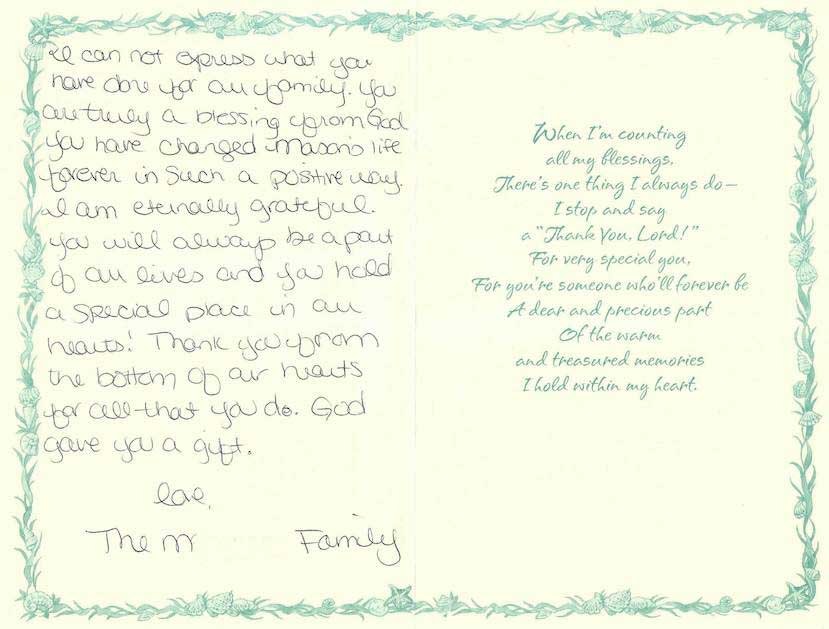 I can not express what you
have done for our family. You
are truly a blessing from God
You have changed Mason's life
forever in such a positive way.
I am eternally grateful.
You will always be a part
of our lives and you hold
a special place in our
hearts! Thank you from
the bottom of our hearts
for all that you do. God
gave you a gift.
Love,
The M Family
When I'm counting
all my blessings,
There's one thing I always do—
I stop and say
a "Thank You, Lord!"
For very special you,
For you're someone who'll forever be
A dear and precious part
Of the warm
and treasured memories
I hold within my heart.